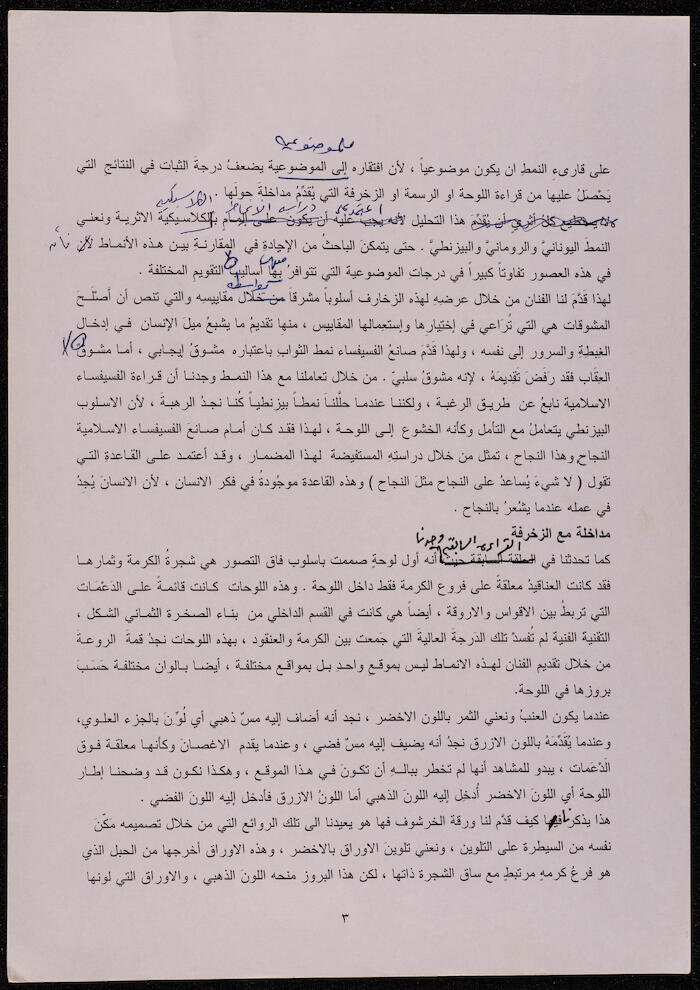 للموضوعية
على قارىءِ النمطِ ان يكون موضوعياً ، لأن افتقاره إلى الموضوعية يضعفُ درجةَ الثبات في النتائج التي
يَحْصَلُ عليها من قراءة اللوحة او الرسمة او الزخرفة التي يُقدَّمُ مداخلةً حولَها .
اعتمد دراسة الانماط الكلاسيكية
هذا التحليل لأنه يجب عليه أن يكون على إلمامٍ بالكلاسيكية الاثرية ونعني
النمطَ اليونانيَّ والرومانيَّ والبيزنطيَّ . حتى يتمكنَ الباحثُ من الإجادةِ في المقارنةِ بين هذه الأنماط لأن
في هذه العصور تفاوتاً كبيراً في درجاتِ الموضوعية التي تتوافرُ بها أساليبُ التقويم المختلفة .
بواسطة
لهذا قدَّمَ لنا الفنان من خلال عرضِهِ لهذه الزخارف أسلوباً مشرقاً من خلال مقاييسِه والتي تنص أن أَصْلَحَ
المشوقات هي التي تُرَاعي في إختيارها وإستعمالها المقاييس ، منها تقديمُ ما يشبعُ ميلَ الإنسان في إدخال
الغبطةِ والسرور إلى نفسه ، ولهذا قدَّمَ صانعُ الفسيفساء نمط الثوابِ باعتباره مشوقُ إيجابي ، أما مشوقُ
العِقَاب فقد رفَضَ تَقدِيمَهُ ، لإنه مشوقُ سلبيّ . من خلال تعاملنا مع هذا النمط وجدنا أن قراءة الفسيفساء
الاسلامية نابعُ عن طريق الرغبة ، ولكننا عندما حلَّلنَا نمطاً بيزنطياً كُنا نجدُ الرهبةَ ، لأن الاسلوب
البيزنطي يتعاملُ مع التأمل وكأنه الخشوع إلى اللوحة ، لهذا فقد كان أمام صانعَ الفسيفساء الاسلامية
النجاح وهذا النجاح ، تمثل من خلال دراستِهِ المستفيضة لهذا المضمار ، وقد أعتمد على القاعدةِ التي
تقول ( لا شيءَ يُساعدُ على النجاح مثلَ النجاح ) وهذه القاعدة موجُودةُ في فكر الانسان ، لأن الانسانَ يُجدُ
في عمله عندما يشْعرُ بالنجاح .
مداخلة مع الزخرفة
القراءة السابقة وجدنا
كما تحدثنا في الحلقة السابقة حيث أنه أول لوحةٍ صممت باسلوب فاق التصور هي شجرةُ الكرمة وثمارها
فقد كانت العناقيدُ معلقةً على فروع الكرمة فقط داخل اللوحة . وهذه اللوحات كانت قائمةً على الدَعْمَات
التي تربطُ بين الاقواس والاروقة ، أيضاً هي كانت في القسم الداخلي من بناء الصخرة الثماني الشكل ،
التقنية الفنية لم تُفسدْ تلك الدَرجةَ العاليةَ التي جَمعت بين الكرمة والعنقود ، بهذه اللوحات نجدُ قمةَ الروعةَ
من خلال تقديم الفنان لهذه الانماط ليس بموقع واحدٍ بل بمواقع مختلفة ، أيضا بالوان مختلفة حَسَبَ
بروزها في اللوحة.
عندما يكون العنبُ ونعني الثمر باللون الاخضر ، نجد أنه أضاف إليه مسّ ذهبي أي لُوِّنَ بالجزء العلوي،
وعندما يُقَدِّمَهُ باللون الازرق نجدُ أنه يضيف إليه مسّ فضي ، وعندما يقدم الاغصانَ وكأنها معلقة فوق
الدَعْمَات ، يبدو للمشاهد أنها لم تخطر ببالهِ أن تكونَ في هذا الموقع ، وهكذا نكون قد وضحنا إطار
اللوحة أي اللونَ الاخضر أُدخِل إليه اللونَ الذهبي أما اللونُ الازرق فأدخل إليه اللونَ الفضي .
هذا يذكرنا كيف قدَّم لنا ورقة الخرشوف فها هو يعيدنا الى تلك الروائع التي من خلال تصميمه مكَّنَ
نفسه من السيطرة على التلوين ، ونعني تلوينَ الاوراق بالاخضر ، وهذه الاوراق أخرجها من الحبل الذي
هو فرعُ كرمهٍ مرتبطٍ مع ساق الشجرة ذاتها ، لكن هذا البروز منحه اللونَ الذهبي ، والاوراق التي لونها
٣